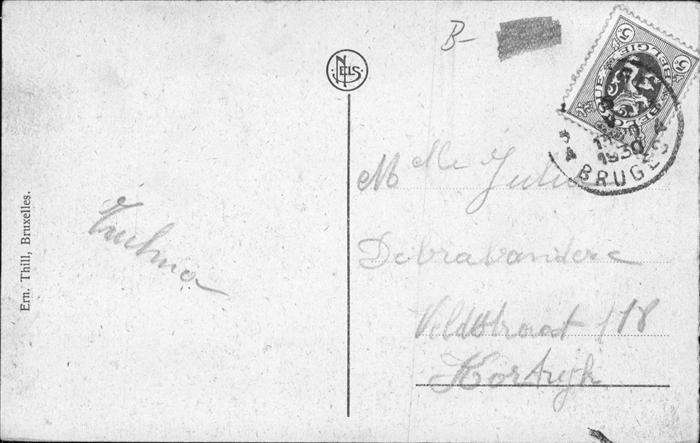 B-
NELS
BELGIE
BRUGGE
1930
Mlle Julie
Debrabandere
Veldstraat 118
Kortrijk
Ern. Thill, Bruxelles.